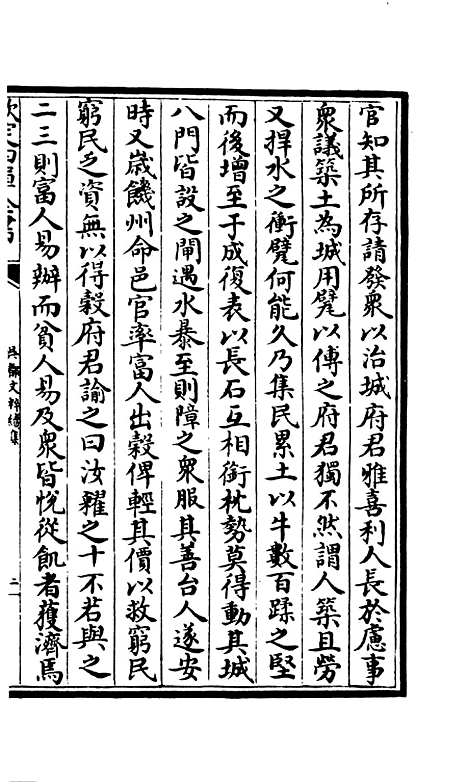 官知其所存請發衆以治城府君雅喜利人長於慮事
衆議築土為城用甓以傅之府君獨不然謂人築且勞
又捍水之衝甓何能久乃集民累土以牛數百蹂之堅
而後增至于成復表以長石互相銜枕勢莫得動其城
八門皆設之閘遇水暴至則障之衆服其善台人遂安
時又歳饑州命邑官率富人出穀俾輕其價以救窮民
窮民乏資無以得穀府君諭之曰汝糶之十不若與之
二三則富人易辦而貧人易及衆皆悅從飢者獲濟焉
欽定四庫全書
吳都文粹續集